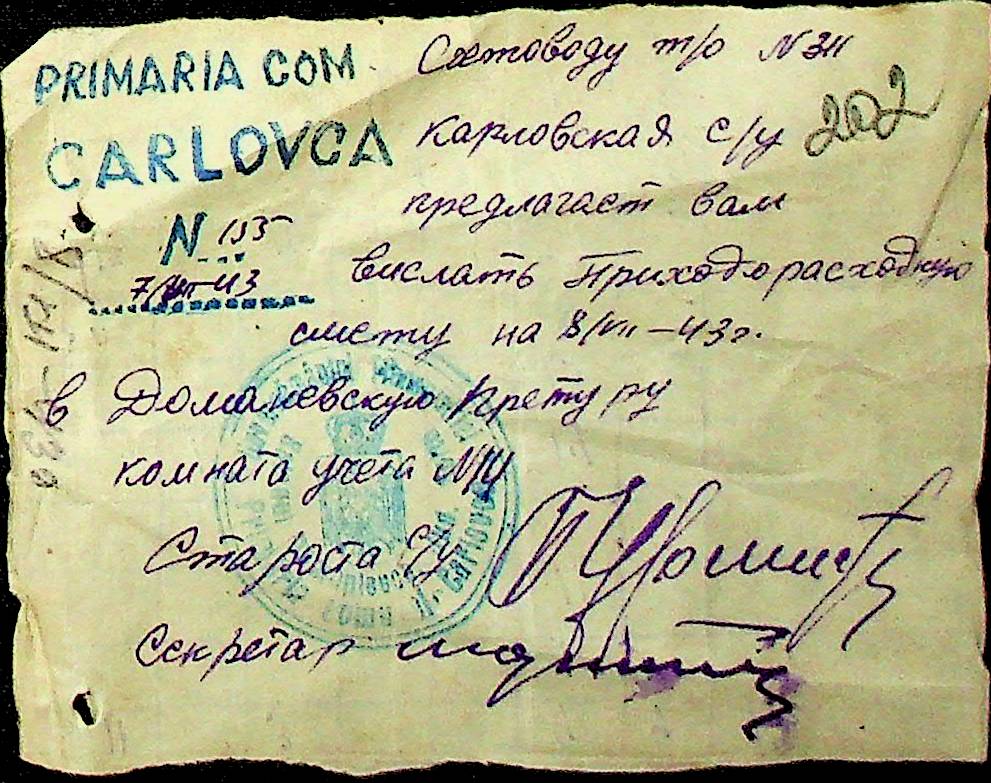 PRIMARIA COM
CARLOVCA
N 155
7/VIII-43
Счетоводу т/о N 311
202
Карловская с/у
предлагает вам
вислать Приходорасходную
смету на 8/VIII-43г.
в Доманевскую Претуру
комната учета N14
Староста С/у
Секретар